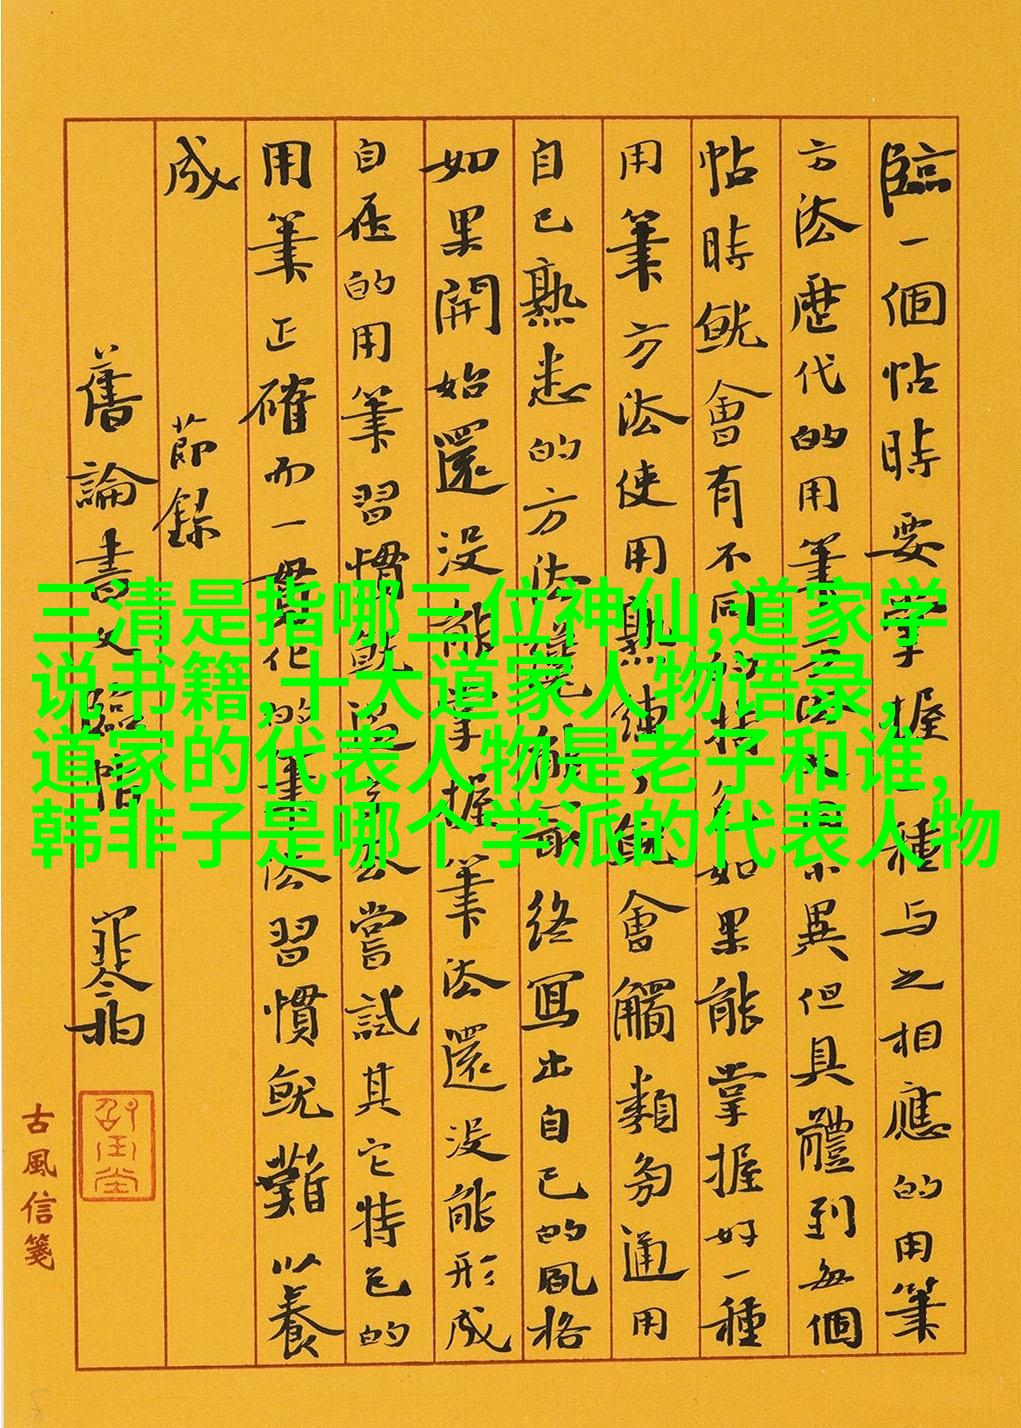 臨一個帖時要掌握一種与之相應的用筆
方法歷代的用筆方法異但具體到每個
帖時就會有不同的如果能掌握好一種
用筆方法使用熟練就會觸類旁通用
自己熟悉的方法能終寫出自己的風格
如果開始還沒能掌握筆法還沒能形成
自在的用筆習慣就去嘗試其它特色的
用筆正確而一貫化的書法習慣就難以養
成 節錄
舊論書文臨帖
古風信箋
三清是指哪三位神仙,道家学
说书籍,十大道家人物语录,
道家的代表人物是老子和谁,
韩非子是哪个学派的代表人物